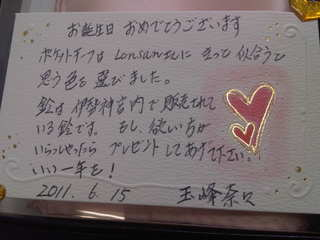 お誕生日 おめでとうございます
ポケットチーフは Lonsunさんに とって 似合うと
思う色を 選びました。
鈴は 伊勢神宮内で 販売されて
いる鈴です。 もし、欲しい方が
いらっしゃったら プレゼント してあげて下さい。
いい一年を!
2011. 6. 15 玉峰奈